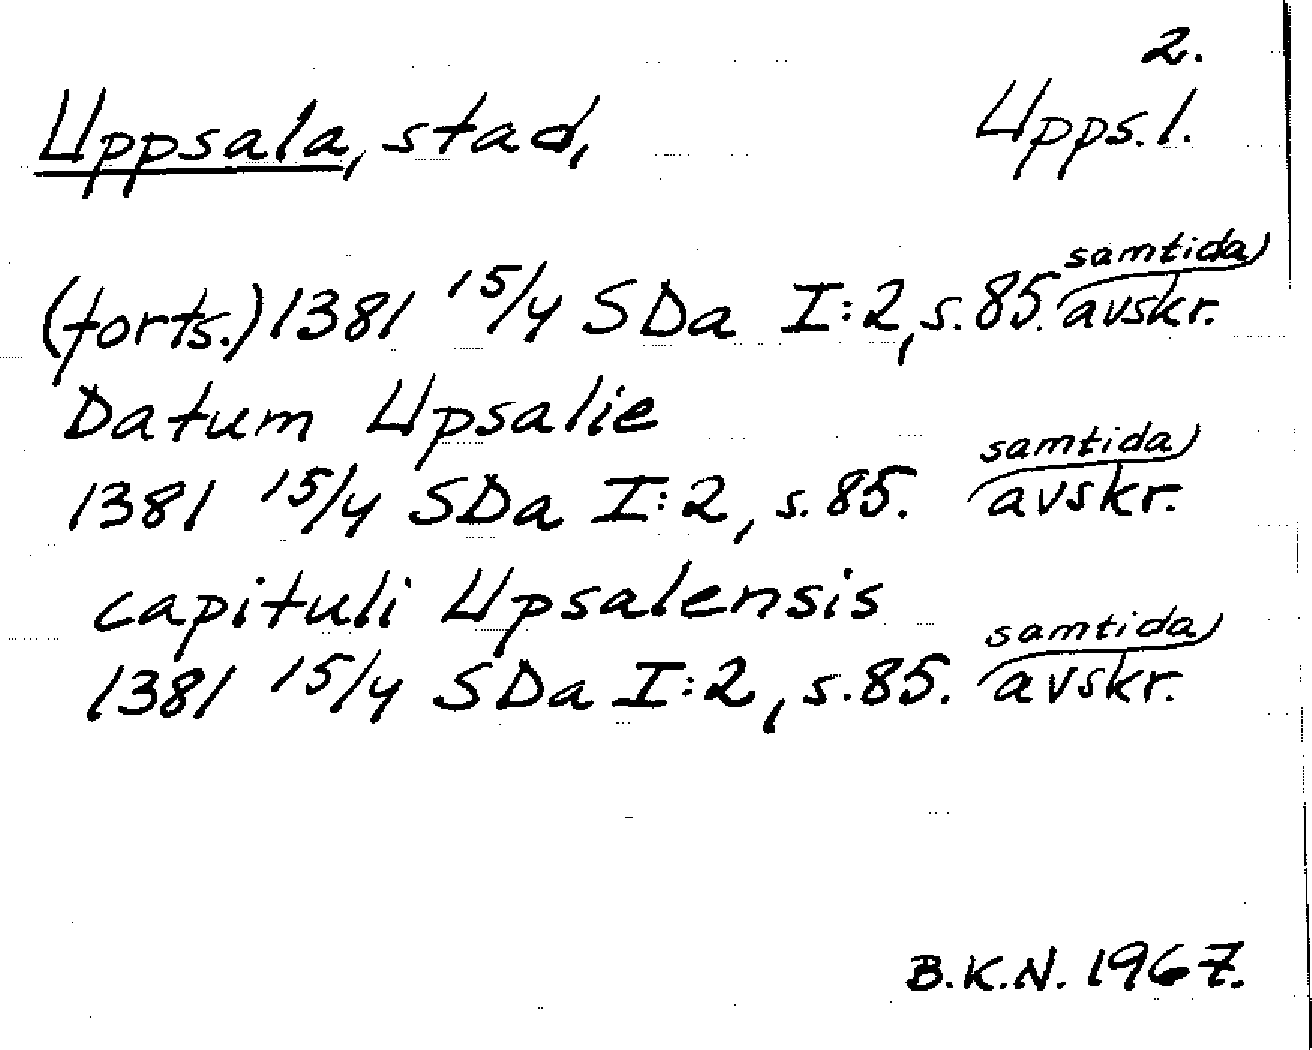 2.
Uppsala, stad, Upps.l.
(forts.) 1381 15/4 SDa I:2, s. 85. samtida avskr.
Datum Upsalie
1381 15/4 SDa I:2, s. 85. samtida avskr.
capituli Upsalensis
1381 15/4 SDa I:2, s. 85. samtida avskr.
B.K.N. 1967.